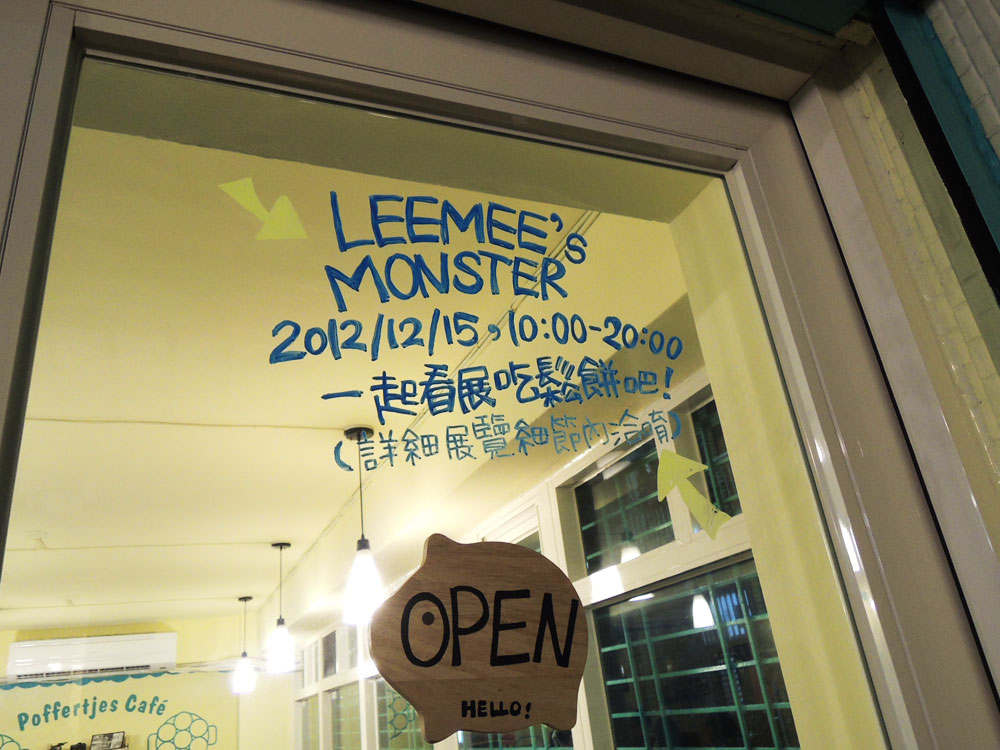 LEEMEE's
MONSTER
2012/12/15，10:00-20:00
一起看展吃鬆餅吧！
（詳細展覽細節內洽唷）
OPEN
HELLO!
Poffertjes Café